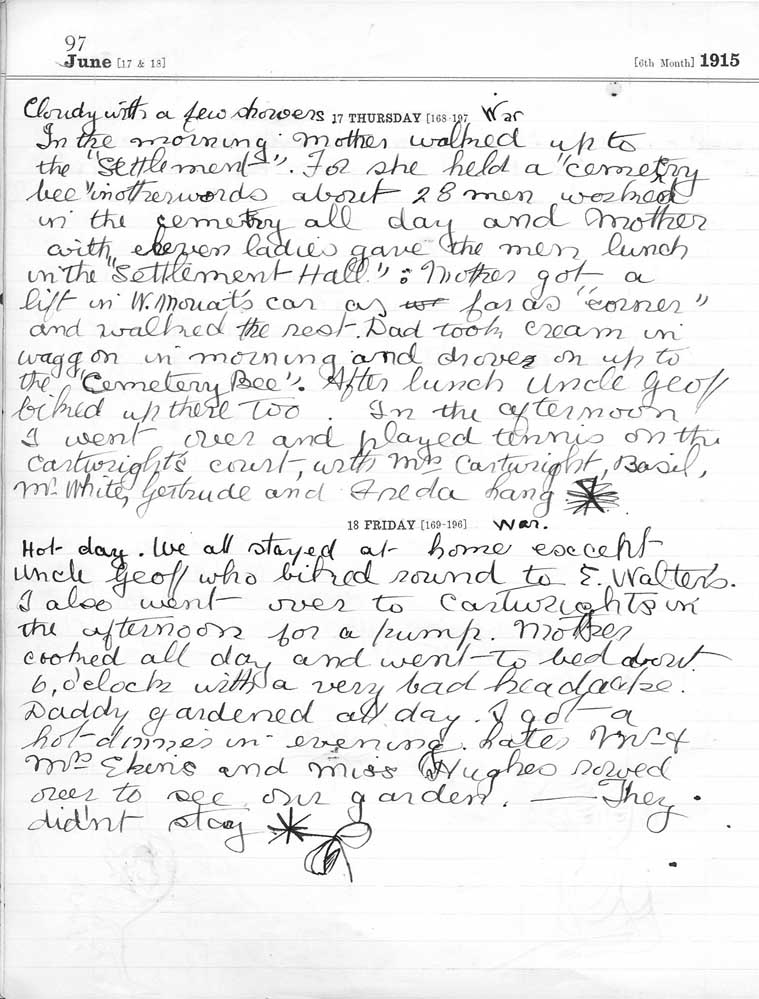 97
June [17 & 18] [6th Month] 1915
Cloudy with a few showers 17 THURSDAY [168-197 War
In the morning mother walked up to
the "Settlement". For she held a "cemetry
bee" inotherwords about 28 men worked
in the cemetry all day and Mother
with eleven ladies gave the men lunch
in the "Settlement Hall". Mother got a
lift in W. Mouat's car as far as "corner"
and walked the rest. Dad took cream in
waggon in morning and drove on up to
the "Cemetery Bee". After lunch Uncle Geoff
biked up there too. In the afternoon
I went over and played tennis on the
Cartwright's court, with Mrs Cartwright, Basil,
Mr White, Gertrude and Freda Lang
18 FRIDAY [169-196] War.
Hot day. We all stayed at home except
Uncle Geoff who biked round to E. Walter's.
I also went over to Cartwrights in
the afternoon for a pump. Mother
cooked all day and went to bed about
6, o'clock with a very bad headache.
Daddy gardened all day. I got a
hot dinner in evening. Later Mr &
Mrs Ekins and Miss Hughes rowed
over to see our garden. — They
didn't stay